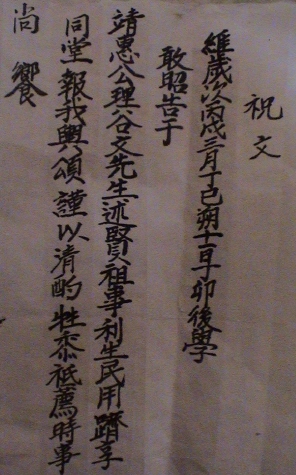 祝文
維歲次丙戌三月丁巳朔十一日丁卯後學
敢昭告于
靖惠公理谷文先生述賢祖事利生民用躋享
同堂報我輿頌謹以清酌牲黍祗薦時事
尚饗